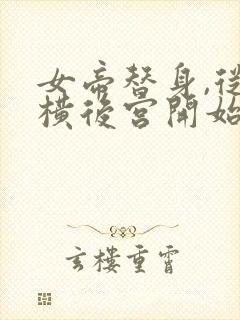 女帝替身,從
橫後宮開始
玄樓重霄